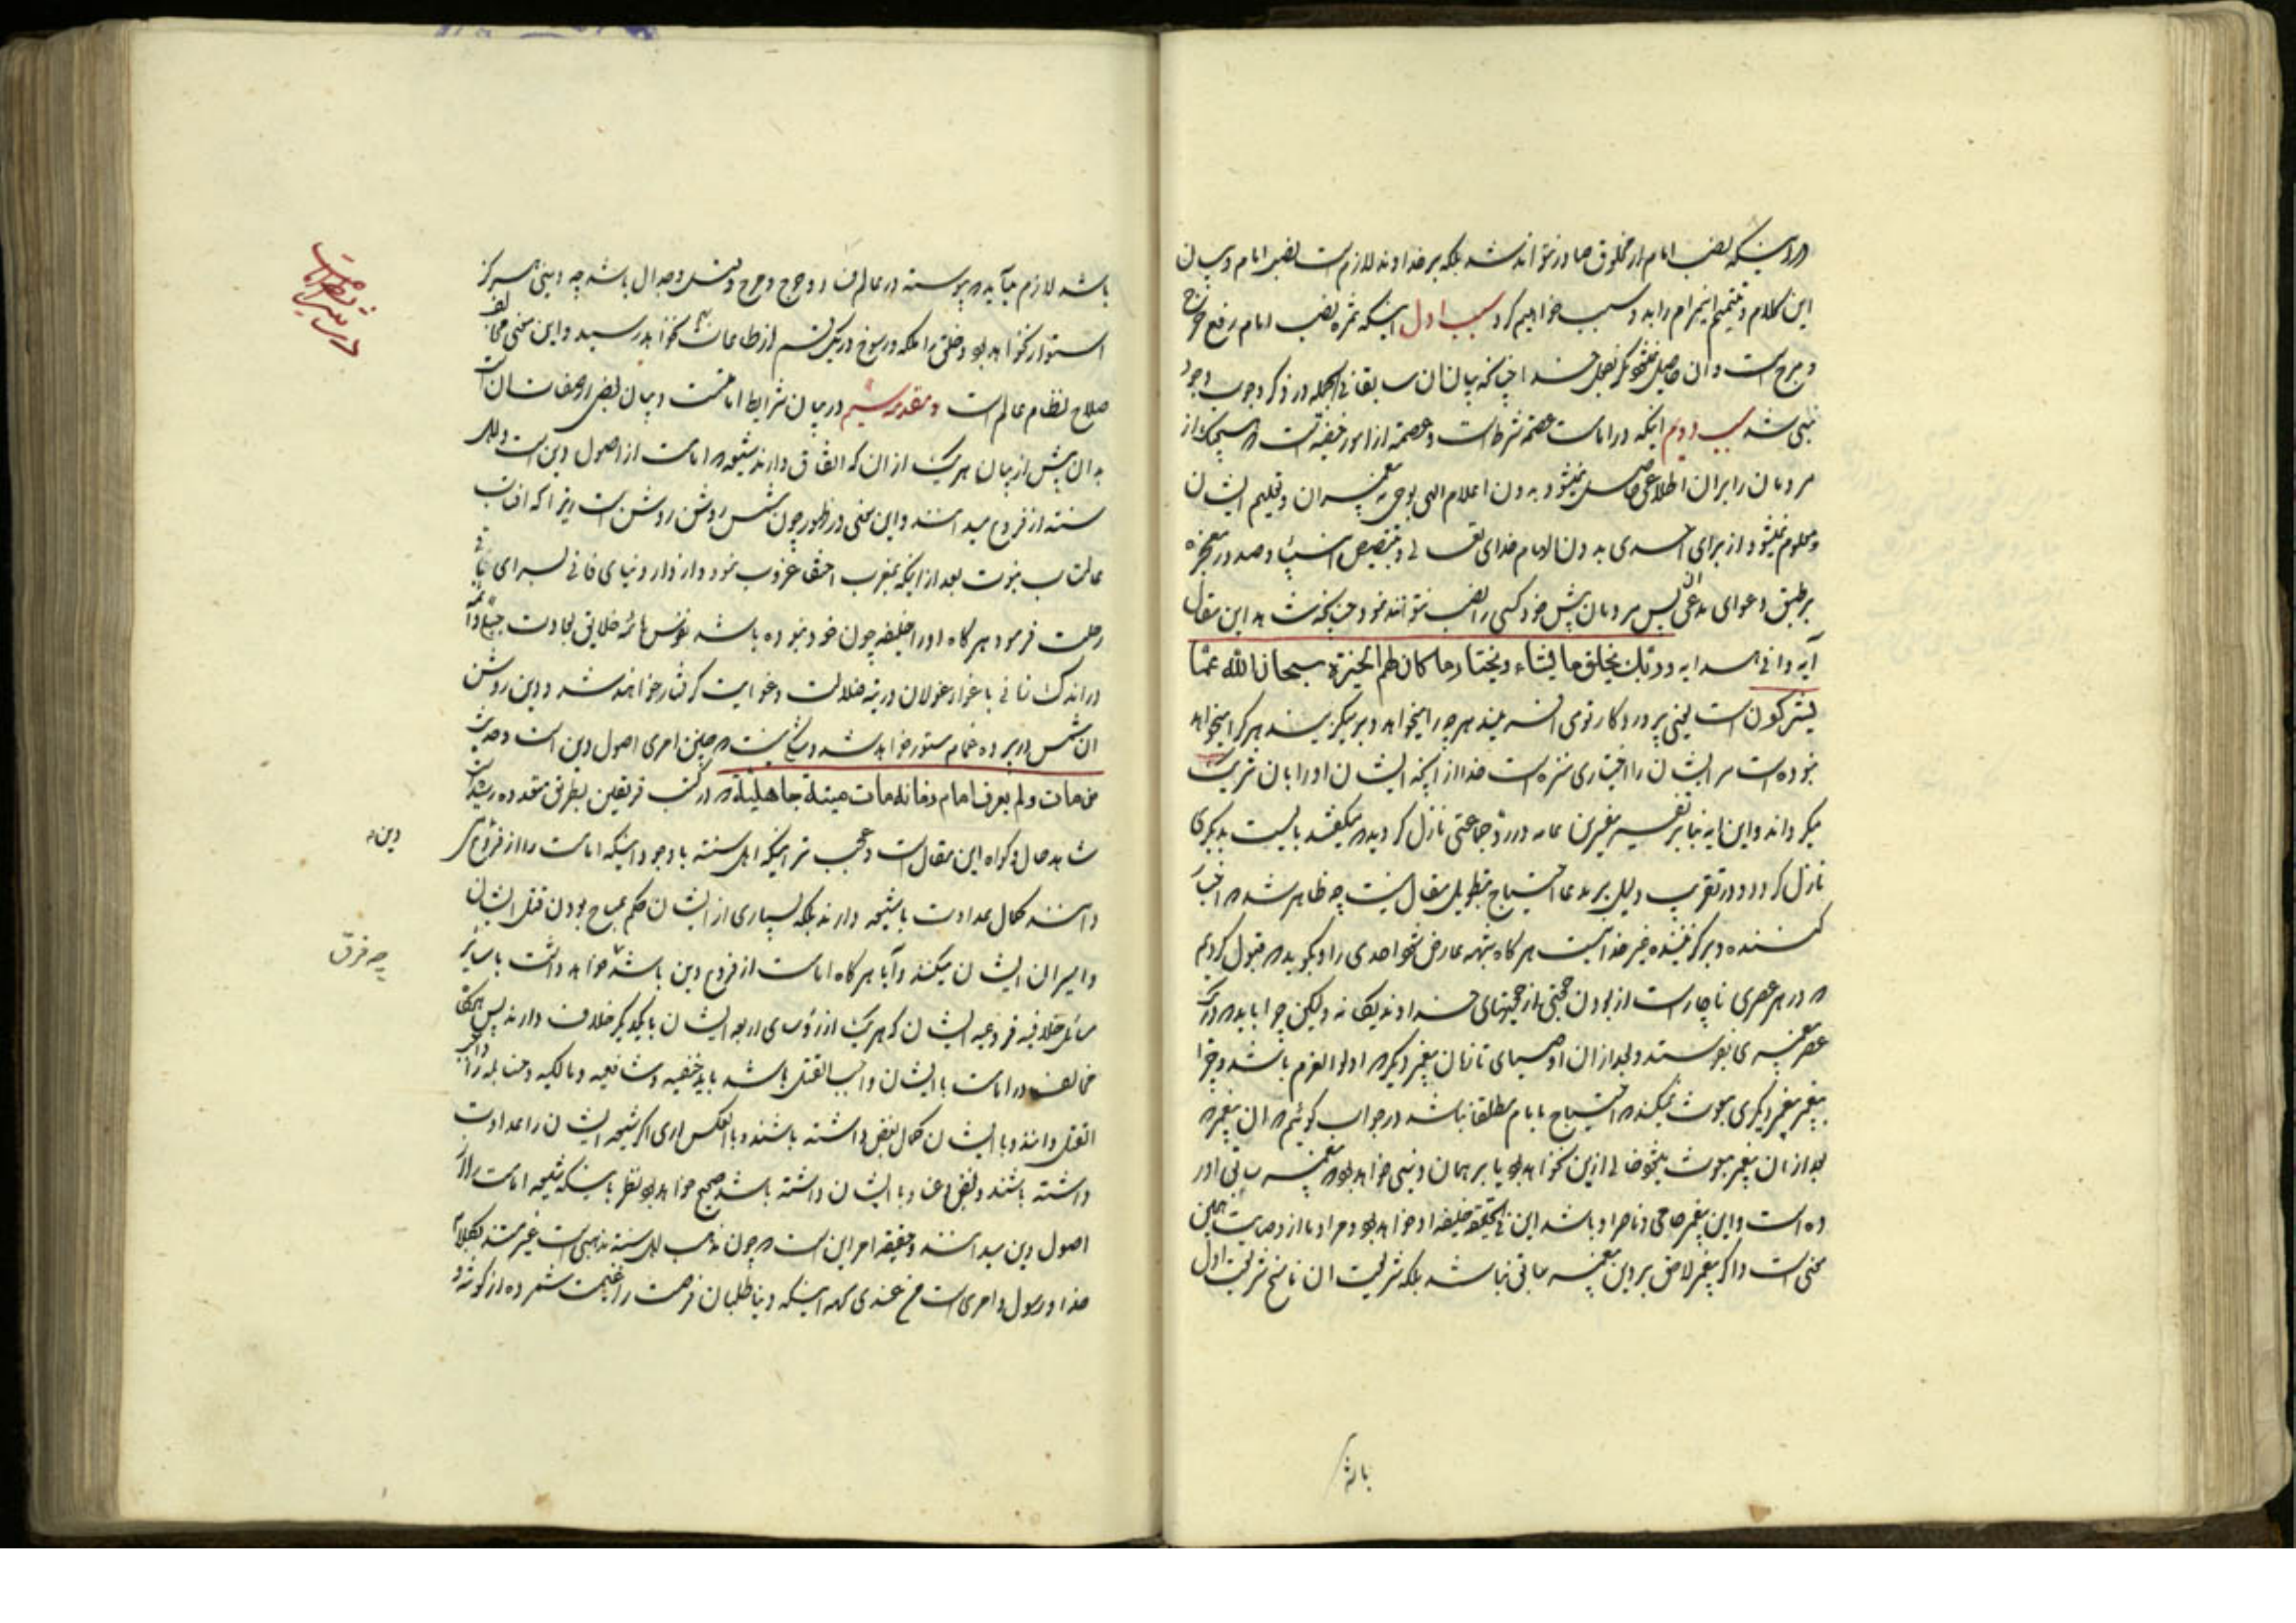 در اینکه نصب امام از مخلوق صادر نتواند شد بلکه بر خداوند لازم است نصب امام و بیان
این کلام و تتمیم اینمرام را بدو سبب خواهیم کرد سبب اول اینکه ثمره نصب امام رفع هرج
و مرج است و ان حاصل نمیشود مگر بفعل خدا چنانکه بیان ان سابقا فی الجمله در ذکر وجوب وجود
نبی شد سبب دویم اینکه در امامت عصمة شرط است و عصمة از امور خفیه است که هیچیک از
مردمان را بران اطلاعی حاصل نمیشود بدون اعلام الهی بوحی به پیغمبران و تعلیم ایشان
و معلوم نمیشود از برای احدی بدون الهام خدای تعالی و تنصیص انبیا و صدور معجزه
بر طبق دعوای مدعی پس مردمان پیش خود کسی را نصب نتوانند نمود چنانکه شاهد این مقال
آیه وافی هدایه وربك يخلق ما يشاء ويختار ما كان لهم الخيرة سبحان الله عما
يشركون است یعنی پروردگار توی افریند هر چه را میخواهد و بر میگزیند هر که را میخواهد
نبوده است مر ایشان را اختیاری منزه است خدا از آنچه ایشان او را بان شریک
میگردانند و این ایه بنا بر تفسیر مفسرین عامه در رد جماعتی نازل گردید که میگفتند بایست بدیگری
نازل گردد و در تقریب دلیل بر مدعا احتیاج بتطویل مقال نیست چه ظاهر شد که اختیار
کننده و برگزیننده غیر خدا نیست هر گاه شبهه عارض شود احدی را و بگوید که قبول کردیم
که در هر عصری ناچار است از بودن حجتی از حجتهای خداوند یگانه ولیکن چرا باید که در یک
عصر پیغمبری بفرستد و بعد از ان اوصیای تا زمان پیغمبر دیگر که اولو العزم باشد و چرا
پیغمبر پیغمبر دیگری مبعوث نمیکند که احتیاج بامام مطلقا نباشد در جواب گوئیم که ان پیغمبر که
بعد از ان پیغمبر مبعوث میشود خالی از این نخواهد بود یا بر همان دینی خواهد بود که پیغمبر سابق آور
ده است و این پیغمبر حامی و ناصر او باشد این فی الحقیقه خلیفه او خواهد بود و مراد ما از وصایت همین
معنی است و اگر پیغمبر لاحق بر دین پیغمبر سابق نباشد بلکه شریعت ان ناسخ شریعت اول
باشد
باشد لازم میآید که پیوسته در عالم فساد و هرج و مرج و قتل و جدال باشد چه دینی هرگز
استوار نخواهد بود و خلق را ملکه و رسوخ در یک قسم از طاعات بهم نخواهد رسید و این معنی مخالف
صلاح نظام عالم است و مقدمه سیم در بیان شرایط امامت و بیان بعض اوصاف ان است
بدان پیش از بیان هر یک از ان که اتفاق دارند شیعه که امامت از اصول دین است و اهل
سنت از فروع میدانند و این معنی در ظهور چون شمس روشن روشن است زیرا که افتاب
عالمتاب نبوت بعد از اینکه بمغرب اختفا غروب نمود و از دار دنیای فانی بسرای باقی
رحلت فرمود هر گاه او را خلیفه چون خود نبوده باشد نفوس هائمه خلایق بعادت
در اندک زمانی باغوای غولان در تیه ضلالت و غوایت گرفتار خواهند شد و دین روشن
ان شمس در پرده غمام مستور خواهد شد و شک نیست که چنین امری اصول دین است و حدیث
من مات ولم يعرف امام زمانه مات ميتة جاهلية که در کتب فریقین بطریق متعدده رسیده
شاهد حال و گواه این مقال است و عجب تر اینکه اهل سنت با وجود اینکه امامت را از فروع دین
دانسته کمال عداوت با شیعه دارند بلکه بسیاری از ایشان حکم بمباح بودن قتل ایشان
و اسیران ایشان میکنند و آیا هر گاه امامت از فروع دین باشد چه فرق خواهد داشت با سایر
مسائل خلافیه فروعیه ایشان که هر یک از رؤسای اربعه ایشان با یکدیگر خلاف دارند پس هرگاه
مخالف در امامت با ایشان واجب القتل باشد باید حنفیه و شافعیه و مالکیه و حنابله را واجب
القتل دانند و با ایشان کمال بغض داشته باشند و بالعکس اری اگر شیعه ایشان را عداوت
داشته باشند و بغض و عناد با ایشان داشته باشد صحیح خواهد بود نظر باینکه شیعه امامت را از
اصول دین میدانند و حقیقه امر این است که چون مذهب اهل سنت مذهبی است غیر مستند بکلام
خدا و رسول و امری است من عندی همه اینکه دنیا طلبان فرصت را غنیمت شمرده از گوشه و
دین
چه فرق